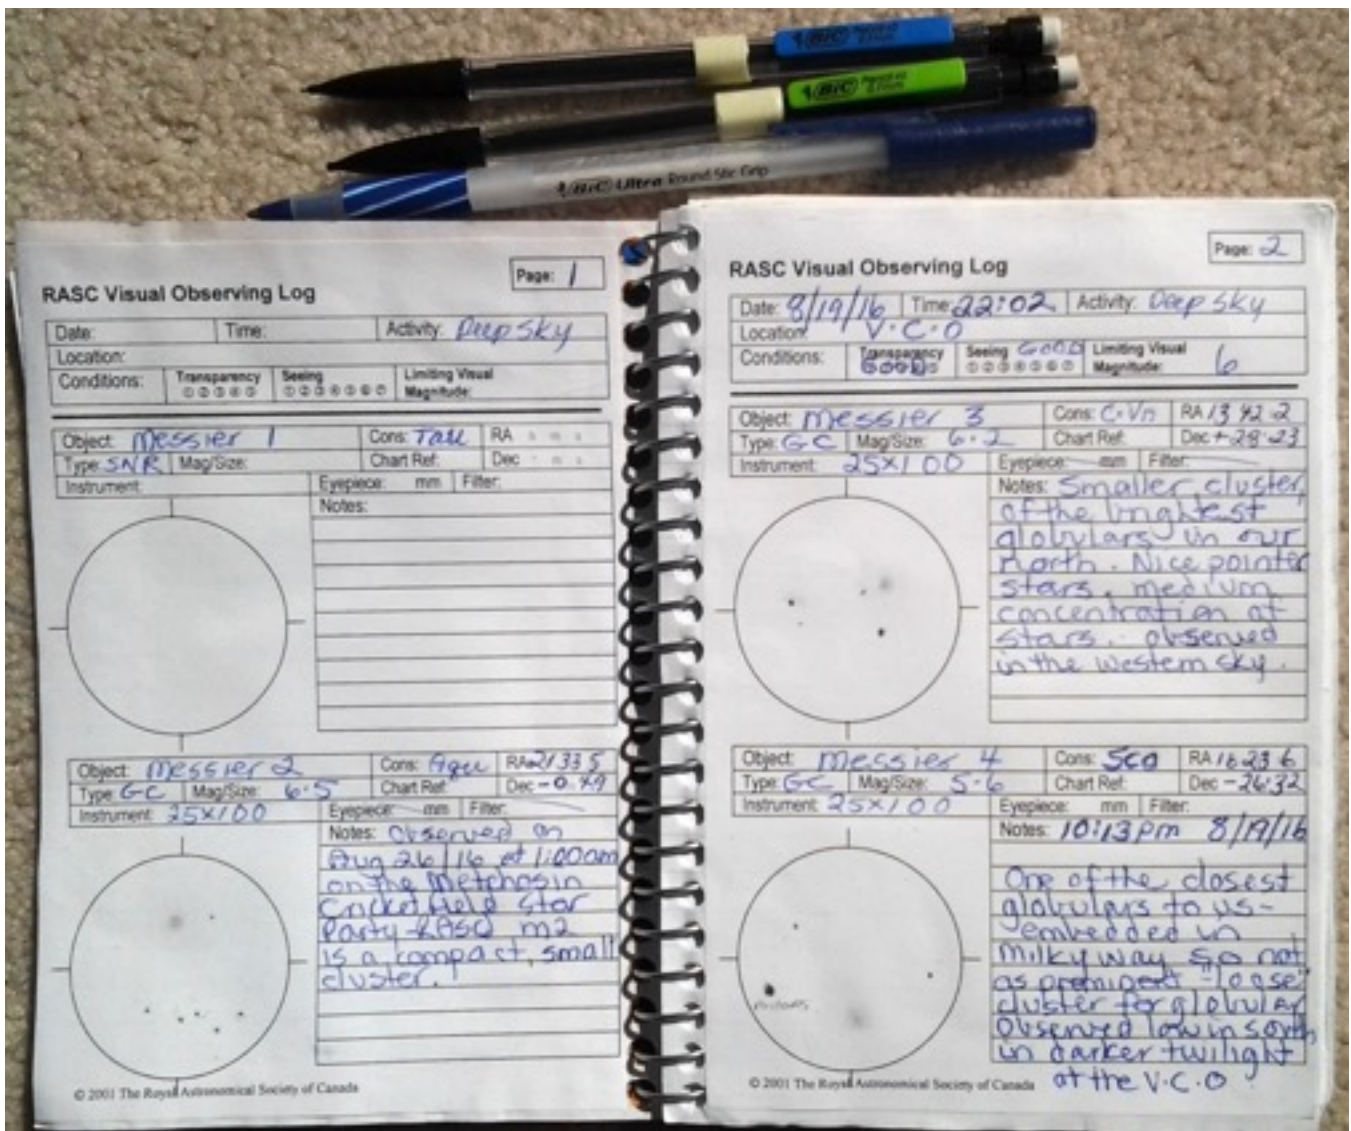 BIC
BIC
BIC Ultra Round Stic Grip
Page: 1
RASC Visual Observing Log
Date: Time: Activity: Deep Sky
Location:
Conditions: Transparency Seeing Limiting Visual
①②③④⑤ ①②③④⑤⑥⑦ Magnitude:
Object: Messier 1 Cons: Tau RA h m s
Type: SNR Mag/Size: Chart Ref: Dec
Instrument: Eyepiece: mm Filter:
Notes:
Object: Messier 2 Cons: Aqu RA 21 33 5
Type: GC Mag/Size: 6.5 Chart Ref: Dec -0.49
Instrument: 25x100 Eyepiece: mm Filter:
Notes: Observed on
Aug 26/16 at 1:00am
on the Metchosin
Cricket Field Star
Party-RASC M2
is a compact, small
cluster.
© 2001 The Royal Astronomical Society of Canada
Page: 2
RASC Visual Observing Log
Date: 8/19/16 Time: 22:02 Activity: Deep Sky
Location: V.C.O
Conditions: Transparency Seeing GOOD Limiting Visual
GOOD ①②③④⑤⑥⑦ Magnitude: 6
Object: Messier 3 Cons: C.Vn RA 13 42 2
Type: GC Mag/Size: 6.2 Chart Ref: Dec +28.23
Instrument: 25x100 Eyepiece: mm Filter:
Notes: Smaller cluster,
of the brightest
globulars in our
north. Nice pointer
stars. medium
concentration of
stars. observed
in the western sky.
Object: Messier 4 Cons: Sco RA 16 23 6
Type: GC Mag/Size: 5.6 Chart Ref: Dec -26:32
Instrument: 25x100 Eyepiece: mm Filter:
Notes: 10:13pm 8/19/16
One of the closest
globulars to us-
embedded in
milky way so not
as prominent "loose"
cluster for globular
observed low in south
in darker twilight
at the V.C.O.
© 2001 The Royal Astronomical Society of Canada